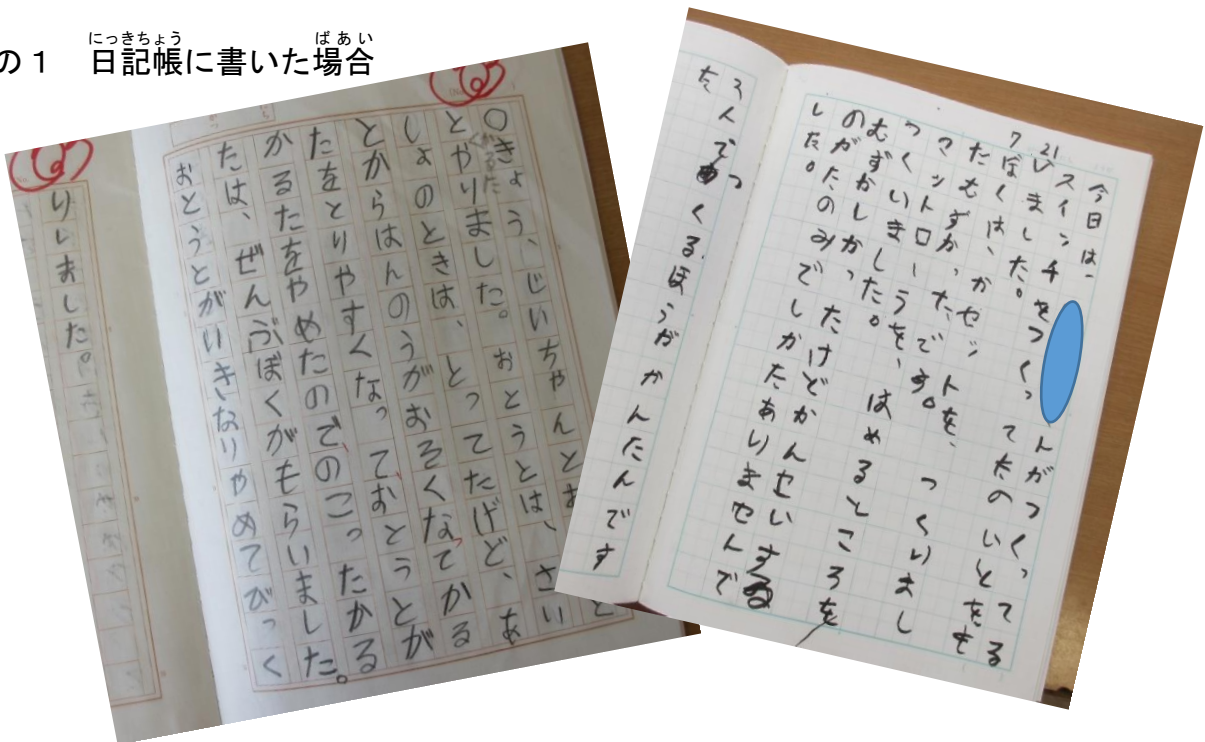 の1　日記帳に書いた場合
にっきちょう　ばあい
○きょう、じいちゃんとお
かるた
とやりました。おとうとは、さい
しょのときは、とってたげど、あ
とからはんのうがおそくなてかる
たをとりやすくなっておとうとが
かるたをやめたのでのこったかる
たは、ぜんぶぼくがもらいました。
おとうとがいきなりやめてびっく
りしました。
今日は、トがつくってる
スインチをつくってたのいとをも
21
ました。
7
ぼくは、かセットを、つくりまし
たむずかったです。
マットローうを、はめるところを
つくいました。
むずかしかったけどかんせいする
のがたのみでしかたありませんで
した。
くるほうがかんたんです
た